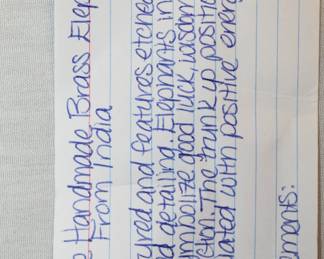 Handmade Brass Elep
From India
ured and features etched
d detailing. Elephants in
mbolize good luck, wisdom
The trunk up positi
iated with positive energ
ements: